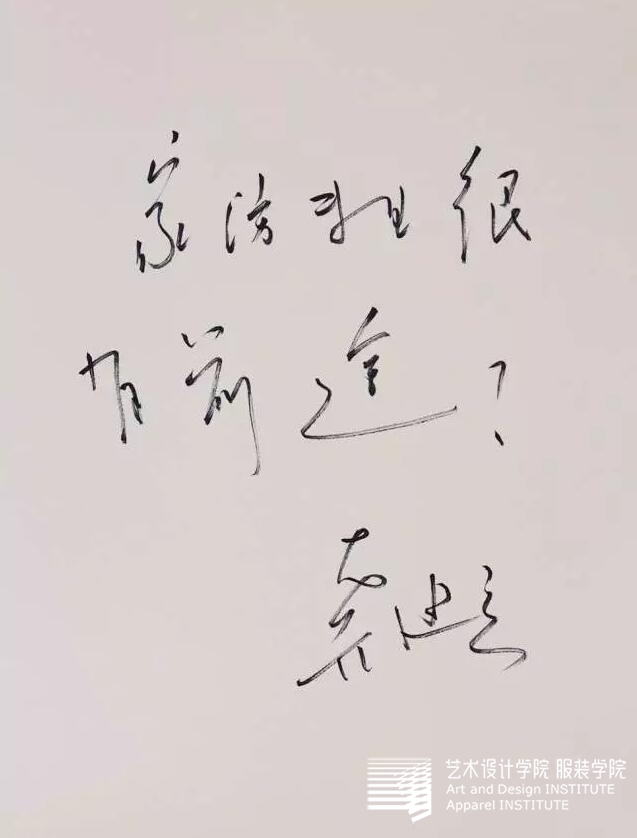 家纺 很
有前途!
艺术设计学院 服装学院
Art and Design INSTITUTE
Apparel INSTITUTE